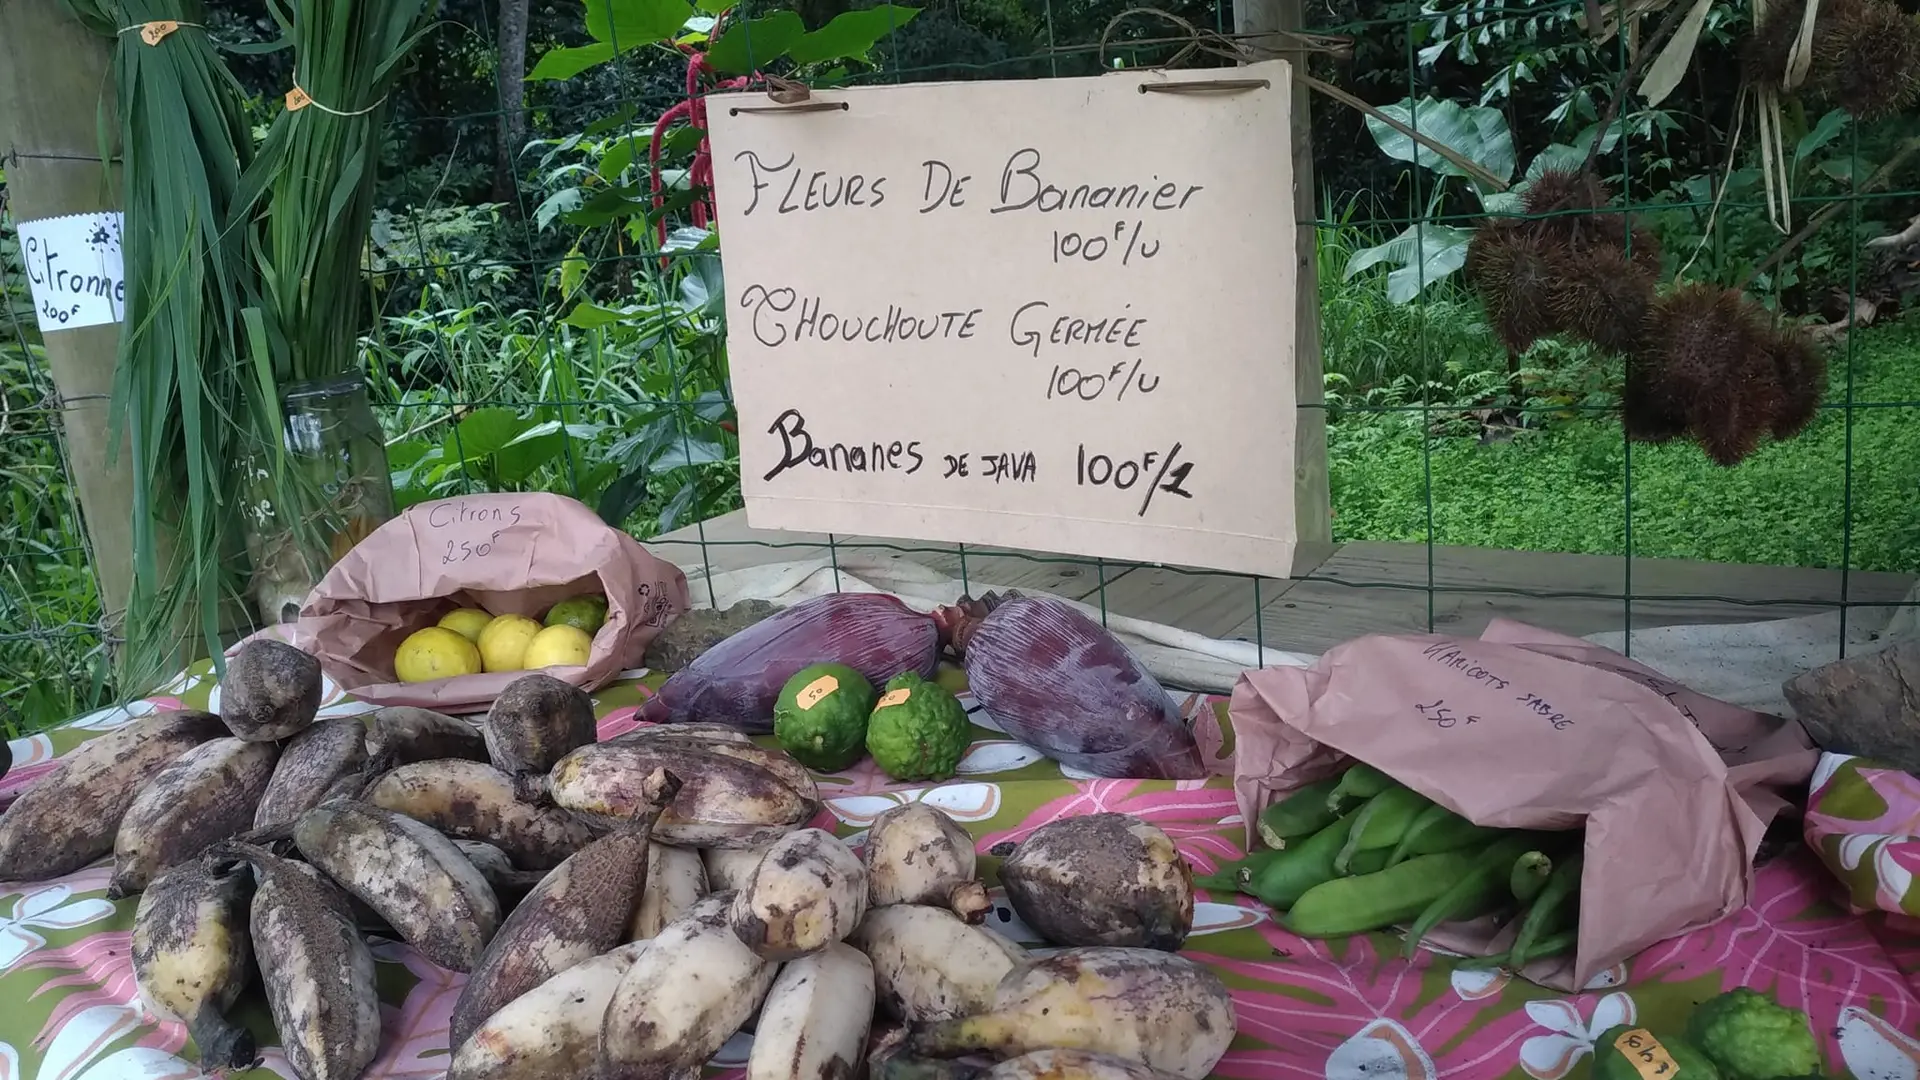 200
200
Citronne
200F
FLEURS DE Bananier
100F/U
CHOUCHOUTE GERMÉE
100F/U
Bananes DE JAVA 100F/1
Citrons
250F
50
HARICOTS SABRE
250F